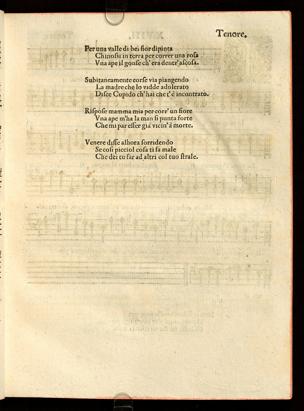 Tenore.
Per una valle di bei fior dipinta
Chinossi in terra per correr una rosa
Vna ape il gonse ch'era dentr'ascosa.
Subitaneamente corse via piangendo
La madre che lo vidde adolerato
Disse Cupido ch'hai che t'é incontrato.
Rispose mamma mia per corr'un fiore
Vna ape m'ha la man si punta forte
Che mi par esser giá vicin'á morte.
Venere disse alhora sorridendo
Se cosi picciol cosa ti fa male
Che dei tu far ad altri col tuo strale.